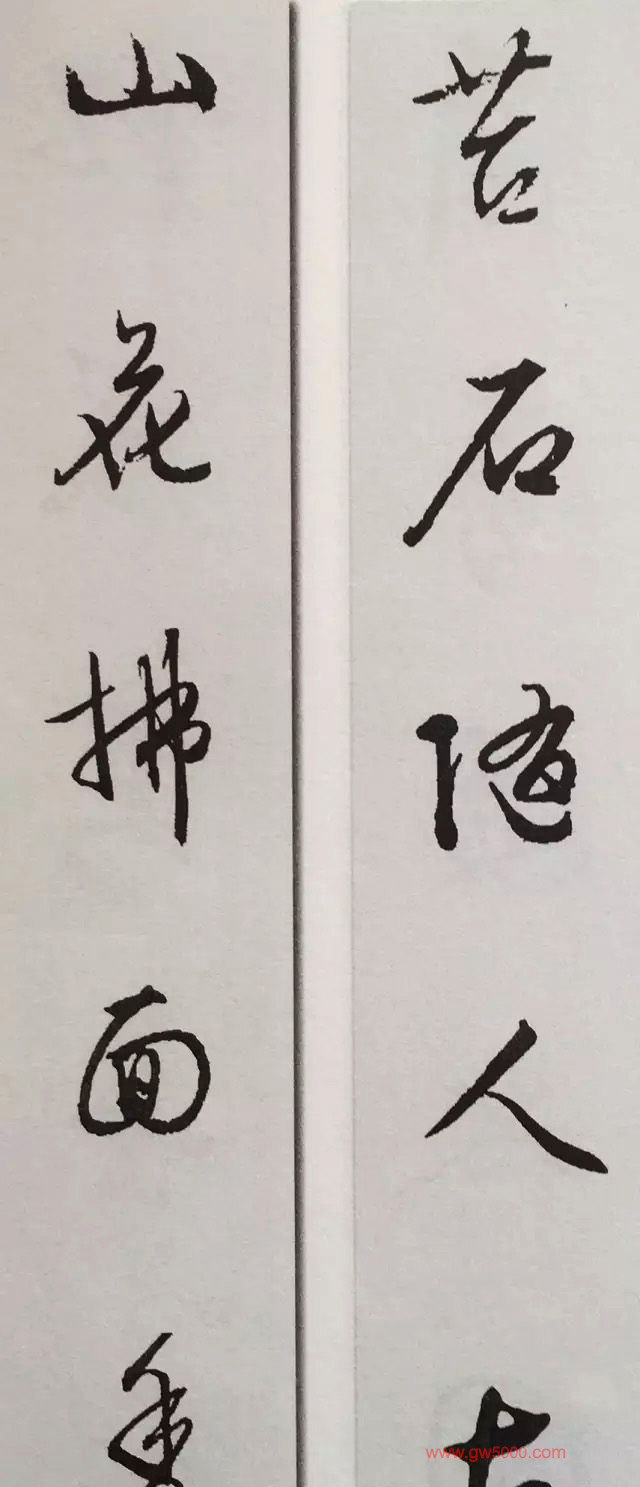 苔石随人古
山花拂面香
www.gw5000.com